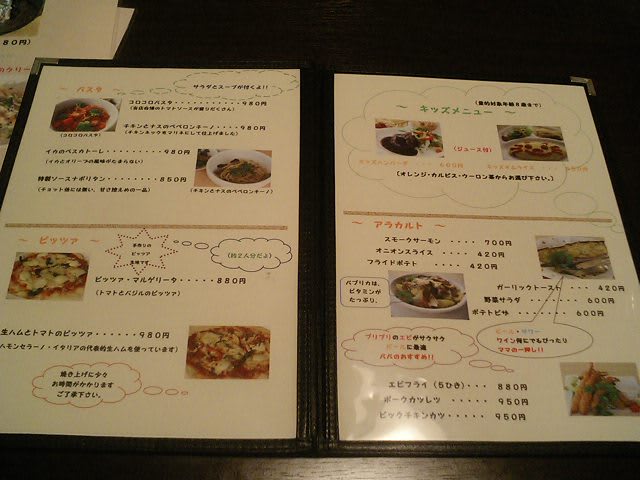 80円)
～ パスタ ～
サラダとスープが付くよ!!
コロコロパスタ・・・・・・・・・・・980円
(当店自慢のトマトソースが盛りだくさん)
(コロコロパスタ)
チキンとナスのペペロンチーノ・・・980円
(チキンネックをマリネにして仕上げました)
イカのペスカトーレ・・・・・・・・・980円
(イカとオリーブの風味がたまらない)
特製ソースナポリタン・・・・・・・・850円
(チョット他には無い、甘さ控えめの一品)
(チキンとナスのペペロンチーノ)
～ ピッツァ ～
手作りの
ピッツァ
生地です
(約2人分だよ)
ピッツァ・マルゲリータ・・・・・880円
(トマトとバジルのピッツァ)
生ハムとトマトのピッツァ・・・・・・980円
ハモンセラーノ・イタリアの代表的生ハムを使っています)
焼き上げに少々
お時間がかかります
ご了承下さい。
～ キッズメニュー ～
(量的対象年齢8歳まで)
(ジュース付)
キッズハンバーグ ・・・・ 600円
キッズオムライス
(オレンジ・カルピス・ウーロン茶からお選び下さい。)
～ アラカルト ～
スモークサーモン ・・・・ 700円
オニオンスライス ・・・・ 420円
フライドポテト ・・・・ 420円
パプリカは、
ビタミンが
たっぷり。
ガーリックトースト・・・ 420円
野菜サラダ ・・・・・・ 600円
ポテトピザ ・・・・・・ 600円
プリプリのエビがサクサク
ビールに最適
パパのおすすめ!!
ビール・サワー
ワイン何にでもぴったり
ママの一押し!!
エビフライ (5ひき)・・・ 880円
ポークカツレツ ・・・・・ 950円
ビックチキンカツ・・・・・ 950円